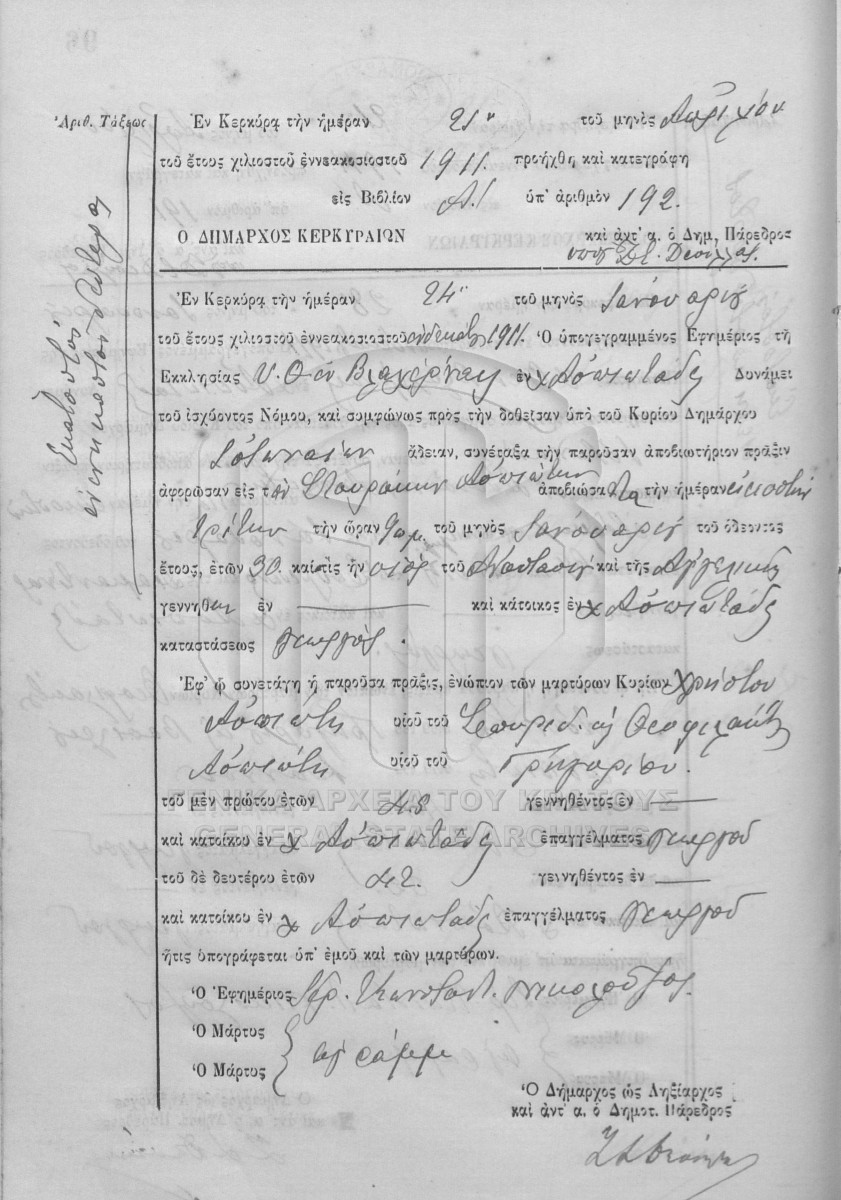 Ἀριθ. Τάξεως
Ἑκατοστὸν
ἐνενηκοστὸν δεύτερον
Ἐν Κερκύρᾳ τὴν ἡμέραν 21ην τοῦ μηνὸς Ἀπριλίου
τοῦ ἔτους χιλιοστοῦ ἐννεακοσιοστοῦ 1911. προήχθη καὶ κατεγράφη
εἰς Βιβλίον Α.! ὑπ' ἀριθμὸν 192.
Ο ΔΗΜΑΡΧΟΣ ΚΕΡΚΥΡΑΙΩΝ καὶ ἀντ' α. ὁ Δημ. Πάρεδρος
Ἐν Κερκύρᾳ τὴν ἡμέραν 24ην τοῦ μηνὸς Ἰανουαρίου
τοῦ ἔτους χιλιοστοῦ ἐννεακοσιοστοῦ ἑνδεκάτου 1911. Ὁ ὑπογεγραμμένος Ἐφημέριος τῆ
Εκκλησίας Υ. Θ. ἐν Βλαχέρναις ἐν χ Αὐπιωτάδες Δυνάμει
τοῦ ἰσχύοντος Νόμου, καὶ συμφώνως πρὸς τὴν δοθεῖσαν ὑπὸ τοῦ Κυρίου Δημάρχου
ἄδειαν, συνέταξα τὴν παροῦσαν ἀποβιωτήριον πρᾶξιν
ἀφορῶσαν εἰς τὸν Σταυράκην Αὐπιώτην ἀποβιώσαντα τὴν ἡμέραν εἰκοστὴν
τρίτην τὴν ὥραν 9 π.μ. τοῦ μηνὸς Ἰανουαρίου τοῦ ὁδεοντος
ἔτους, ἐτῶν 30 καὶ τὶς ἦν υἱὸς τοῦ Ἀναστασίου καὶ τῆς Ἀγγελικῆς
γεννηθεὶς ἐν — καὶ κάτοικος ἐν χ Αὐπιωτάδες
καταστάσεως γεωργὸς.
Ἐφ' ᾧ συνετάγη ἡ παροῦσα πρᾶξις, ἐνώπιον τῶν μαρτύρων Κυρίων Χρήστου
Αὐπιώτη υἱοῦ τοῦ Σπυρίδ. καὶ Θεοφιλάκτου
Αὐπιώτη υἱοῦ τοῦ Γρηγορίου.
τοῦ μὲν πρώτου ἐτῶν 48 γεννηθέντος ἐν —
καὶ κατοίκου ἐν χ Αὐπιωτάδες ἐπαγγέλματος γεωργοῦ
τοῦ δὲ δευτέρου ἐτῶν 42. γεννηθέντος ἐν —
καὶ κατοίκου ἐν χ Αὐπιωτάδες ἐπαγγέλματος γεωργοῦ
ἥτις ὑπογράφεται ὑπ' ἐμοῦ καὶ τῶν μαρτύρων.
Ὁ Ἐφημέριος Ἱερ. Κωνσταντ. Νικολοῦζος.
Ὁ Μάρτυς
Ὁ Μάρτυς ἀγράμμ
Ὁ Δήμαρχος ὡς Ληξίαρχος
καὶ ἀντ' α. ὁ Δημοτ. Πάρεδρος
ΓΕΝΙΚΑ ΑΡΧΕΙΑ ΤΟΥ ΚΡΑΤΟΥΣ
GENERAL STATE ARCHIVES